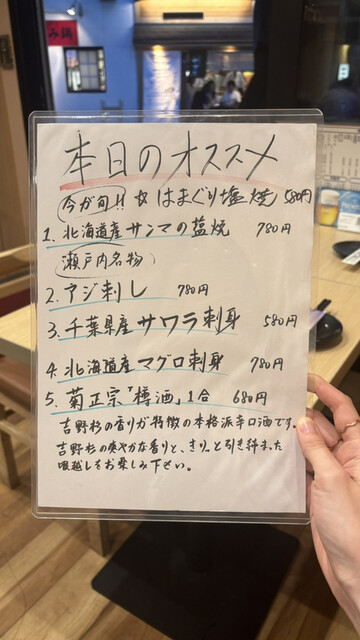 本日のオススメ
今が旬!! ☆はまぐり塩焼 580円
1. 北海道産サンマの塩焼 780円
瀬戸内名物
2. アジ刺し 780円
3. 千葉県産サワラ刺身 580円
4. 北海道産マグロ刺身 780円
5. 菊正宗「樽酒」1合 680円
吉野杉の香りが特徴の本格派辛口酒です。
吉野杉の爽やかな香りと、きりっと引き締まった
喉越しをお楽しみ下さい。